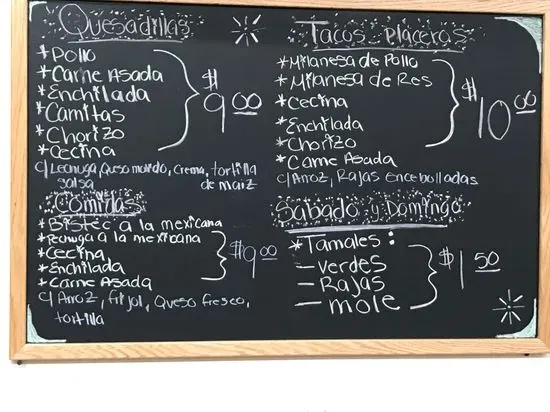 Quesadillas
*Pollo
*Carne Asada
*Enchilada
*Camitas
*Chorizo
*Cecina
$9.00
c/Lechuga, Queso molido, Crema, tortilla
salsa de maiz
Comidas
*Bistec a la mexicana
*Pechuga a la mexicana
*Cecina
*Enchilada
*Carne Asada
$9.00
c/ Arroz, frijol, Queso fresco,
tortilla
Tacos Placeros
*Milanesa de Pollo
*Milanesa de Res
*Cecina
*Enchilada
*Chorizo
*Carne Asada
$10.00
c/Arroz, Rajas Encebolladas
Sabado y Domingo
*Tamales:
-verdes
-Rajas
-mole
$1.50